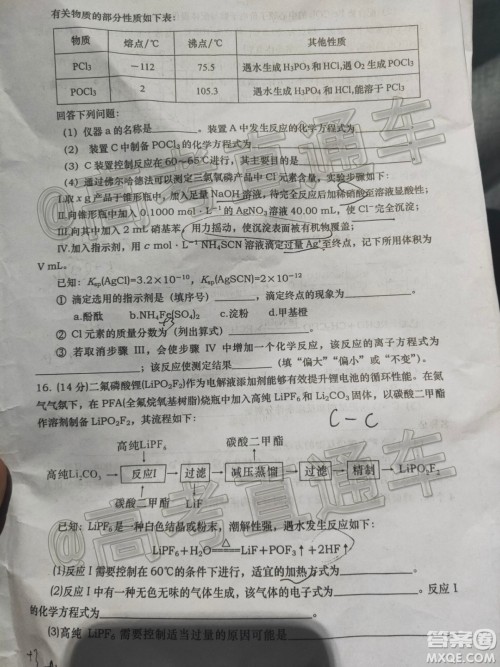 有关物质的部分性质如下表:
物质 熔点/℃ 沸点/℃ 其他性质
PCl3 −112 75.5 遇水生成H3PO3和HCl,遇O2生成POCl3
POCl3 2 105.3 遇水生成H3PO4和HCl,能溶于PCl3
回答下列问题:
(1) 仪器 a 的名称是______。装置 A 中发生反应的化学方程式为______
(2) 装置 C 中制备 POCl3 的化学方程式为______
(3) C 装置控制反应在 60~65℃进行,其主要目的是______
(4) 通过佛尔哈德法可以测定三氯氧磷产品中 Cl 元素含量,实验步骤如下:
Ⅰ.取 x g 产品于锥形瓶中,加入足量 NaOH 溶液,待完全反应后加稀硝酸至溶液显酸性;
Ⅱ.向锥形瓶中加入 0.1000 mol·L−1 的 AgNO3 溶液 40.00 mL,使 Cl−完全沉淀;
Ⅲ.向其中加入 2 mL 硝基苯,用力摇动,使沉淀表面被有机物覆盖;
Ⅳ.加入指示剂,用 c mol·L−1 NH4SCN 溶液滴定过量 Ag+至终点,记下所用体积为
V mL。
已知:Ksp(AgCl)=3.2×10−10,Ksp(AgSCN)=2×10−12
① 滴定选用的指示剂是(填序号)______,滴定终点的现象为______。
a.酚酞 b.NH4Fe(SO4)2 c.淀粉 d.甲基橙
② Cl 元素的质量分数为(列出算式)______
③ 若取消步骤 Ⅲ,会使步骤 Ⅳ 中增加一个化学反应,该反应的离子方程式为
______;该反应使测定结果______(填“偏大”“偏小”或“不变”)。
16. (14 分)二氟磷酸锂(LiPO2F2)作为电解液添加剂能够有效提升锂电池的循环性能。在氮
气气氛下,在 PFA(全氟烷氧基树脂)烧瓶中加入高纯 LiPF6 和 Li2CO3 固体,以碳酸二甲酯
作溶剂制备 LiPO2F2,其流程如下:
C−C
高纯LiPF6 碳酸二甲酯
高纯Li2CO3 反应Ⅰ 过滤 减压蒸馏 过滤 精制 LiPO2F2
碳酸二甲酯 LiF
已知:LiPF6 是一种白色结晶或粉末,潮解性强,遇水发生反应如下:
LiPF6+H2O══△LiF+POF3↑+2HF↑
(1)反应Ⅰ需要控制在 60℃的条件下进行,适宜的加热方式为______。
(2)反应Ⅰ中有一种无色无味的气体生成,该气体的电子式为______。反应Ⅰ
的化学方程式为______
(3)高纯 LiPF6 需要控制适当过量的原因可能是______
@高考直通车
@高考直通车
答案圈
MXQE.COM